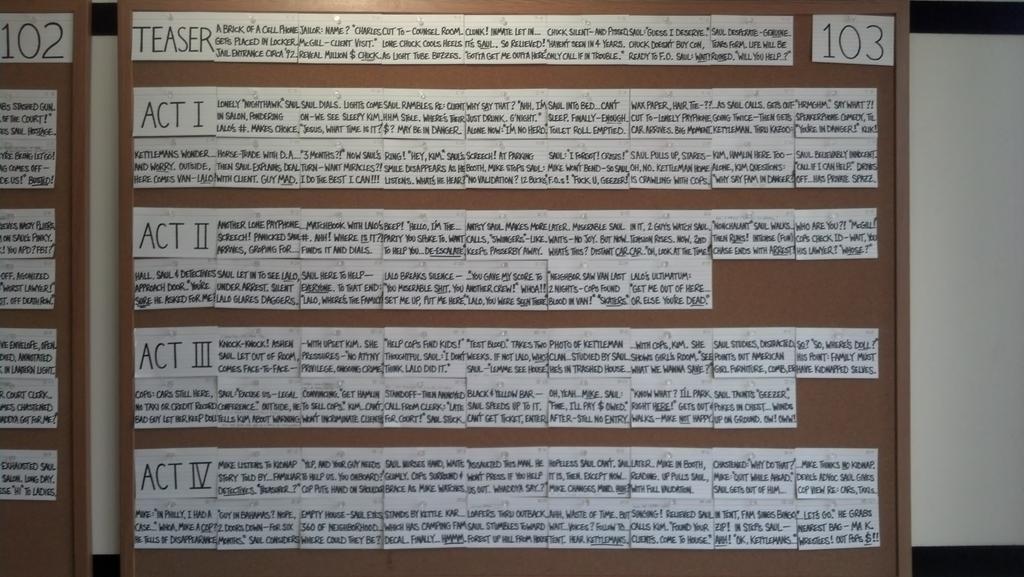 102
TEASER
A BRICK OF A CELL PHONE
GETS PLACED IN LOCKER.
JAIL ENTRANCE CIRCA '92.
JAILOR: NAME? "CHARLES
McGILL - CLIENT VISIT."
REVEAL MILLION $ CHUCK.
CUT TO - COUNSEL ROOM.
LONE CHUCK COOLS HEELS
AS LIGHT TUBE BUZZES.
CLUNK! INMATE LET IN...
IT'S SAUL. SO RELIEVED!
"GOTTA GET ME OUTTA HERE
CHUCK SILENT - AND PISSED.
"HAVEN'T SEEN IN 4 YEARS.
ONLY CALL IF IN TROUBLE."
SAUL: "GUESS I DESERVE."
CHUCK DOESN'T BUY CON,
READY TO F.O. SAUL: WAIT!
SAUL DESPERATE - GENUINE.
TEARS FORM. LIFE WILL BE
RUINED. "WILL YOU HELP?"
103
ACT I
LONELY "NIGHTHAWK" SAUL
IN SALON, PONDERING
LALO'S #. MAKES CHOICE.
SAUL DIALS. LIGHTS COME
ON - WE SEE SLEEPY KIM.
"JESUS, WHAT TIME IS IT?
SAUL RAMBLES RE: CLIENT
HHM STOLE. WHERE'S THEIR
$? MAY BE IN DANGER.
WHY SAY THAT? "AHH, I'M
JUST DRUNK. G'NIGHT."
ALONE NOW: "I'M NO HERO.
SAUL INTO BED... CAN'T
SLEEP. FINALLY - ENOUGH.
TOILET ROLL EMPTIED.
WAX PAPER, HAIR TIE -??
CUT TO - LONELY PAYPHONE.
CAR ARRIVES. BIG MOMENT.
AS SAUL CALLS. GETS OUT
GOING TWICE - THEN GETS
KETTLEMAN. THRU KAZOO:
"HRMGHM." SAY WHAT?!
SPEAKERPHONE COMEDY, TIL
"YOU'RE IN DANGER!" KLIK!
KETTLEMANS WONDER...
AND WORRY. OUTSIDE,
HERE COMES VAN - LALO
HORSE-TRADE WITH D.A....
THEN SAUL EXPLAINS DEAL
WITH CLIENT. GUY MAD.
"3 MONTHS?!" NOW SAUL'S
TURN - WANT MIRACLES?!
I DO THE BEST I CAN!!!
RING! "HEY, KIM." SAUL'S
SMILE DISAPPEARS AS HE
LISTENS. WHAT'S HE HEAR?
SCREECH! AT PARKING
BOOTH, MIKE STOPS SAUL:
NO VALIDATION? 12 BUCKS.
SAUL: "I FORGOT! CRISIS!"
MIKE WON'T BEND - SO SAUL
F.O.s! "FUCK U, GEEZER!"
SAUL PULLS UP, STARES -
OH, NO. KETTLEMAN HOME
IS CRAWLING WITH COPS.
KIM, HAMLIN HERE TOO -
ALONE, KIM QUESTIONS:
"WHY SAY FAM IN DANGER?
SAUL BELIEVABLY INNOCENT.
"CALL IF I CAN HELP." DRIVES
OFF... HAS PRIVATE SPAZZ.
ACT II
ANOTHER LONE PAYPHONE.
SCREECH! PANICKED SAUL
ARRIVES, GROPING FOR...
...MATCHBOOK WITH LALO'S
#. AHH! WHERE IS IT?
FINDS IT AND DIALS.
BEEP! "HELLO, I'M THE
PARTY YOU SPOKE TO. WANT
TO HELP YOU... DE-ESCALATE.
ANTSY SAUL MAKES MORE
CALLS, "SWINGERS"-LIKE.
KEEPS PASSERBY AWAY.
LATER. MISERABLE SAUL
WAITS - NO JOY. BUT NOW
WHAT'S THIS? DISTANT CAR.
IN IT, 2 GUYS WATCH SAUL.
TENSION RISES. NOW, 2ND
CAR. "OH, LOOK AT THE TIME!
"NONCHALANT" SAUL WALKS.
THEN RUNS! INTENSE (FUN)
CHASE ENDS WITH ARREST!
WHO ARE YOU?! "McGILL!
COPS CHECK ID - WAIT, YOU
HIS LAWYER? "WHOSE?"
HALL. SAUL & DETECTIVES
APPROACH DOOR. "YOU'RE
SURE HE ASKED FOR ME?
SAUL LET IN TO SEE LALO,
UNDER ARREST. SILENT
LALO GLARES DAGGERS.
SAUL HERE TO HELP -
EVERYONE. TO THAT END:
"LALO, WHERE'S THE FAMILY?
LALO BREAKS SILENCE -
"YOU MISERABLE SHIT, YOU
SET ME UP, PUT ME HERE."
..."YOU GAVE MY SCORE TO
ANOTHER CREW!" WHOA!!
"LALO, YOU WERE SEEN THERE
NEIGHBOR SAW VAN LAST
2 NIGHTS - COPS FOUND
BLOOD IN VAN! "SKATERS"
LALO'S ULTIMATUM:
"GET ME OUT OF HERE...
OR ELSE YOU'RE DEAD."
ACT III
KNOCK-KNOCK! ASHEN
SAUL LET OUT OF ROOM,
COMES FACE-TO-FACE -
- WITH UPSET KIM. SHE
PRESSURES - "NO ATTNY
PRIVILEGE, ONGOING CRIME
"HELP COPS FIND KIDS!"
THOUGHTFUL SAUL: "I DON'T
THINK LALO DID IT."
"TEST BLOOD." TAKES TWO
WEEKS. IF NOT LALO, WHO?
SAUL - "LEMME SEE HOUSE."
PHOTO OF KETTLEMAN
CLAN... STUDIED BY SAUL.
HE'S IN TRASHED HOUSE...
...WITH COPS, KIM. SHE
SHOWS GIRL'S ROOM. "SEE
WHAT WE WANNA SAVE?
SAUL STUDIES, DISTRACTED.
POINTS OUT AMERICAN
GIRL FURNITURE, COMB, ETC.
SO? "SO, WHERE'S DOLL?"
HIS POINT: FAMILY MUST
HAVE KIDNAPPED SELVES.
COPS: CARS STILL HERE,
NO TAXI OR CREDIT RECORD.
BAD GUY LET HER KEEP DOLL
SAUL: "EXCUSE US - LEGAL
CONFERENCE." OUTSIDE, HE
TELLS KIM ABOUT WARNING.
CONVINCING. "GET HAMLIN
TO SELL COPS." KIM CAN'T,
WON'T INCRIMINATE CLIENTS.
STANDOFF - THEN ANNOYED
CALL FROM CLERK: "LATE
FOR COURT!" SAUL STUCK.
BLACK & YELLOW BAR -
SAUL SPEEDS UP TO IT.
CAN'T GET TICKET, ENTER.
OH, YEAH... MIKE. SAUL:
"FINE, I'LL PAY $ OWED."
AFTER - STILL NO ENTRY.
"KNOW WHAT? I'LL PARK
RIGHT HERE!" GETS OUT &
WALKS - MIKE NOT HAPPY.
SAUL TAUNTS "GEEZER."
POKES IN CHEST... WINDS
UP ON GROUND. OW! OWW!
ACT IV
MIKE LISTENS TO KIDNAP
STORY TOLD BY... FAMILIAR
DETECTIVES. "TREASURER..?"
"YEP, AND YOUR GUY NEEDS
TO HELP US. YOU ONBOARD?
COP PUTS HAND ON SHOULDER
SAUL NURSES HAND, WAITS
GLUMLY. COPS SURROUND &
BRACE AS MIKE WATCHES.
"ASSAULTED THIS MAN. HE
WON'T PRESS IF YOU HELP
US OUT. WHADDYA SAY?"
HOPELESS SAUL CAN'T. SAIL
IT IS, THEN. EXCEPT NOW...
MIKE CHANGES MIND. HUH?
LATER... MIKE IN BOOTH,
READING. UP PULLS SAUL,
WITH FULL VALIDATION.
CHASTENED: "WHY DO THAT?"
MIKE: "QUIT WHILE AHEAD."
SAUL GETS OUT OF HIM...
...MIKE THINKS NO KIDNAP.
DEVIL'S ADVOC SAUL GIVES
COP VIEW RE: CARS, TAXIS.
MIKE: "IN PHILLY, I HAD A
CASE." WHOA, MIKE A COP?
HE TELLS OF DISAPPEARANCE
"GUY IN BAHAMAS? NOPE,
2 DOORS DOWN - FOR SIX
MONTHS." SAUL CONSIDERS
EMPTY HOUSE - SAUL EYES
360 OF NEIGHBORHOOD.
WHERE COULD THEY BE?
STANDS BY KETTLE KAR...
WHICH HAS CAMPING FAM
DECAL. FINALLY... HMMM.
LOAFERS THRU OUTBACK.
SAUL STUMBLES TOWARD
FOREST UP HILL FROM HOUSE
AHH, WASTE OF TIME. BUT
WAIT... VOICES? FOLLOW TO
TENT. HEAR KETTLEMANS.
SINGING! RELIEVED SAUL
CALLS KIM. "FOUND YOUR
CLIENTS. COME TO HOUSE."
IN TENT, FAM SINGS BINGO.
ZIP! IN STEPS SAUL -
AHH! "OK, KETTLEMANS...
...LET'S GO." HE GRABS
NEAREST BAG - MA K.
WRESTLES! OUT POPS $!!